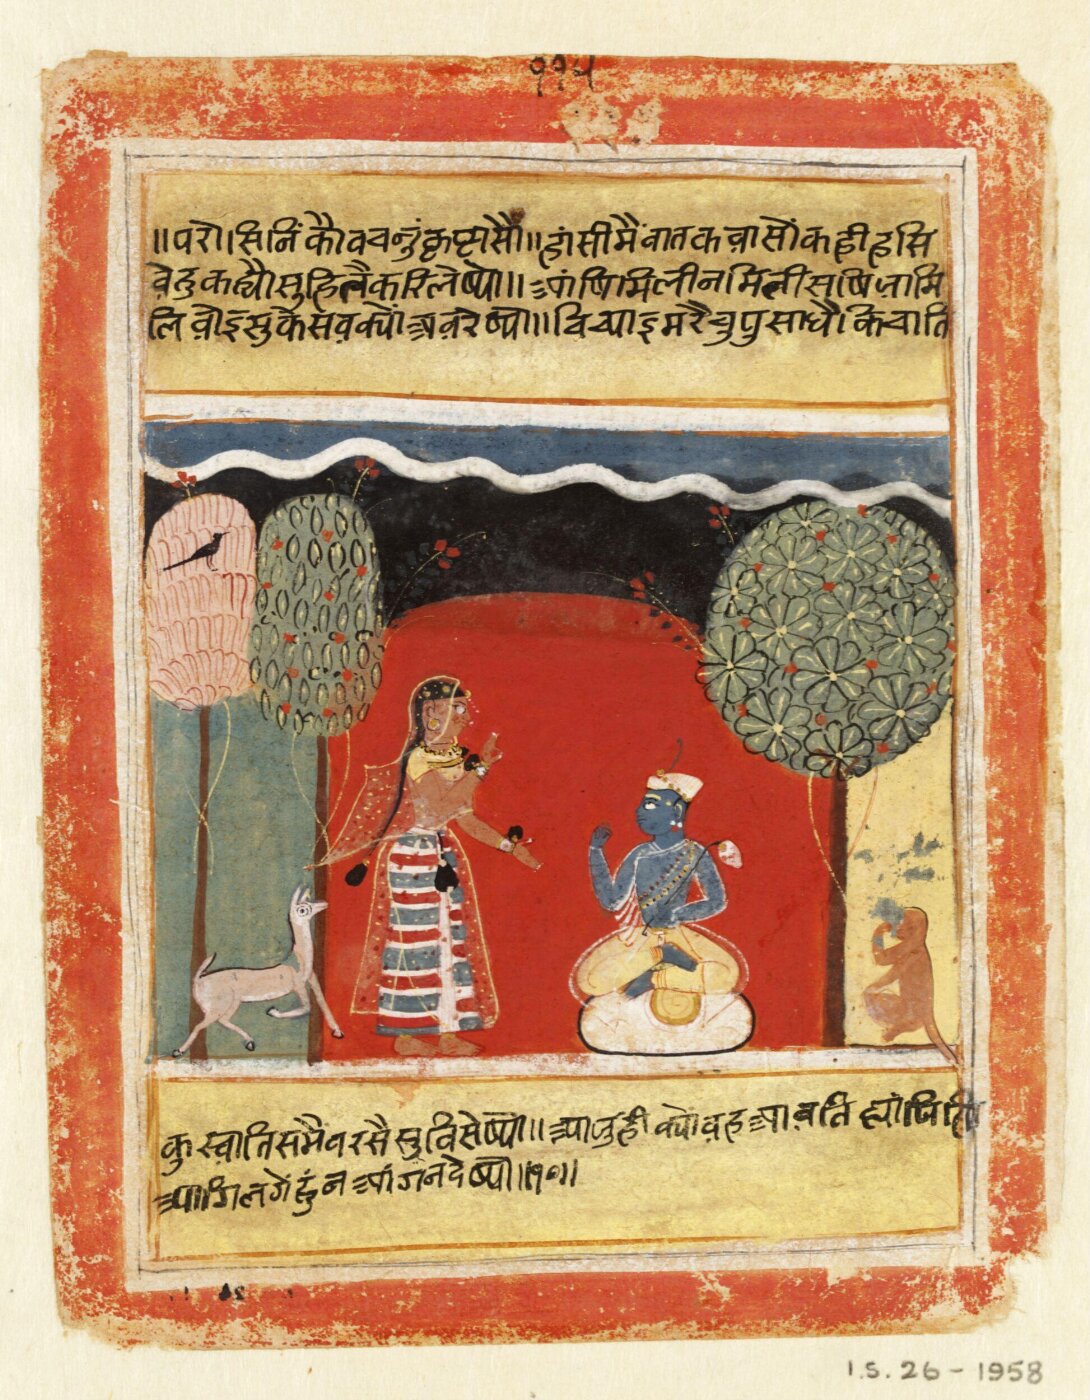 ११५
॥परोसिनिं कौ वचनुं कृष्ण सौं॥ हांसी मैं बात कवासौं कही हसि
वेदु कह्यौ सु हितै करि लेष्यो॥ आंषि मिली न मिली सषि जामि
लिवोइ सु केसव क्यों अवरेष्यो॥ विद्याइ मरै चुप साधै कि चाति
कु स्वाति समै वरसै सु विसेष्यौ॥ आजु ही क्यौं वह आवति ह्यां
आगि लगें हुं न आंगन देष्यौ॥१०॥
I.S. 26-1958